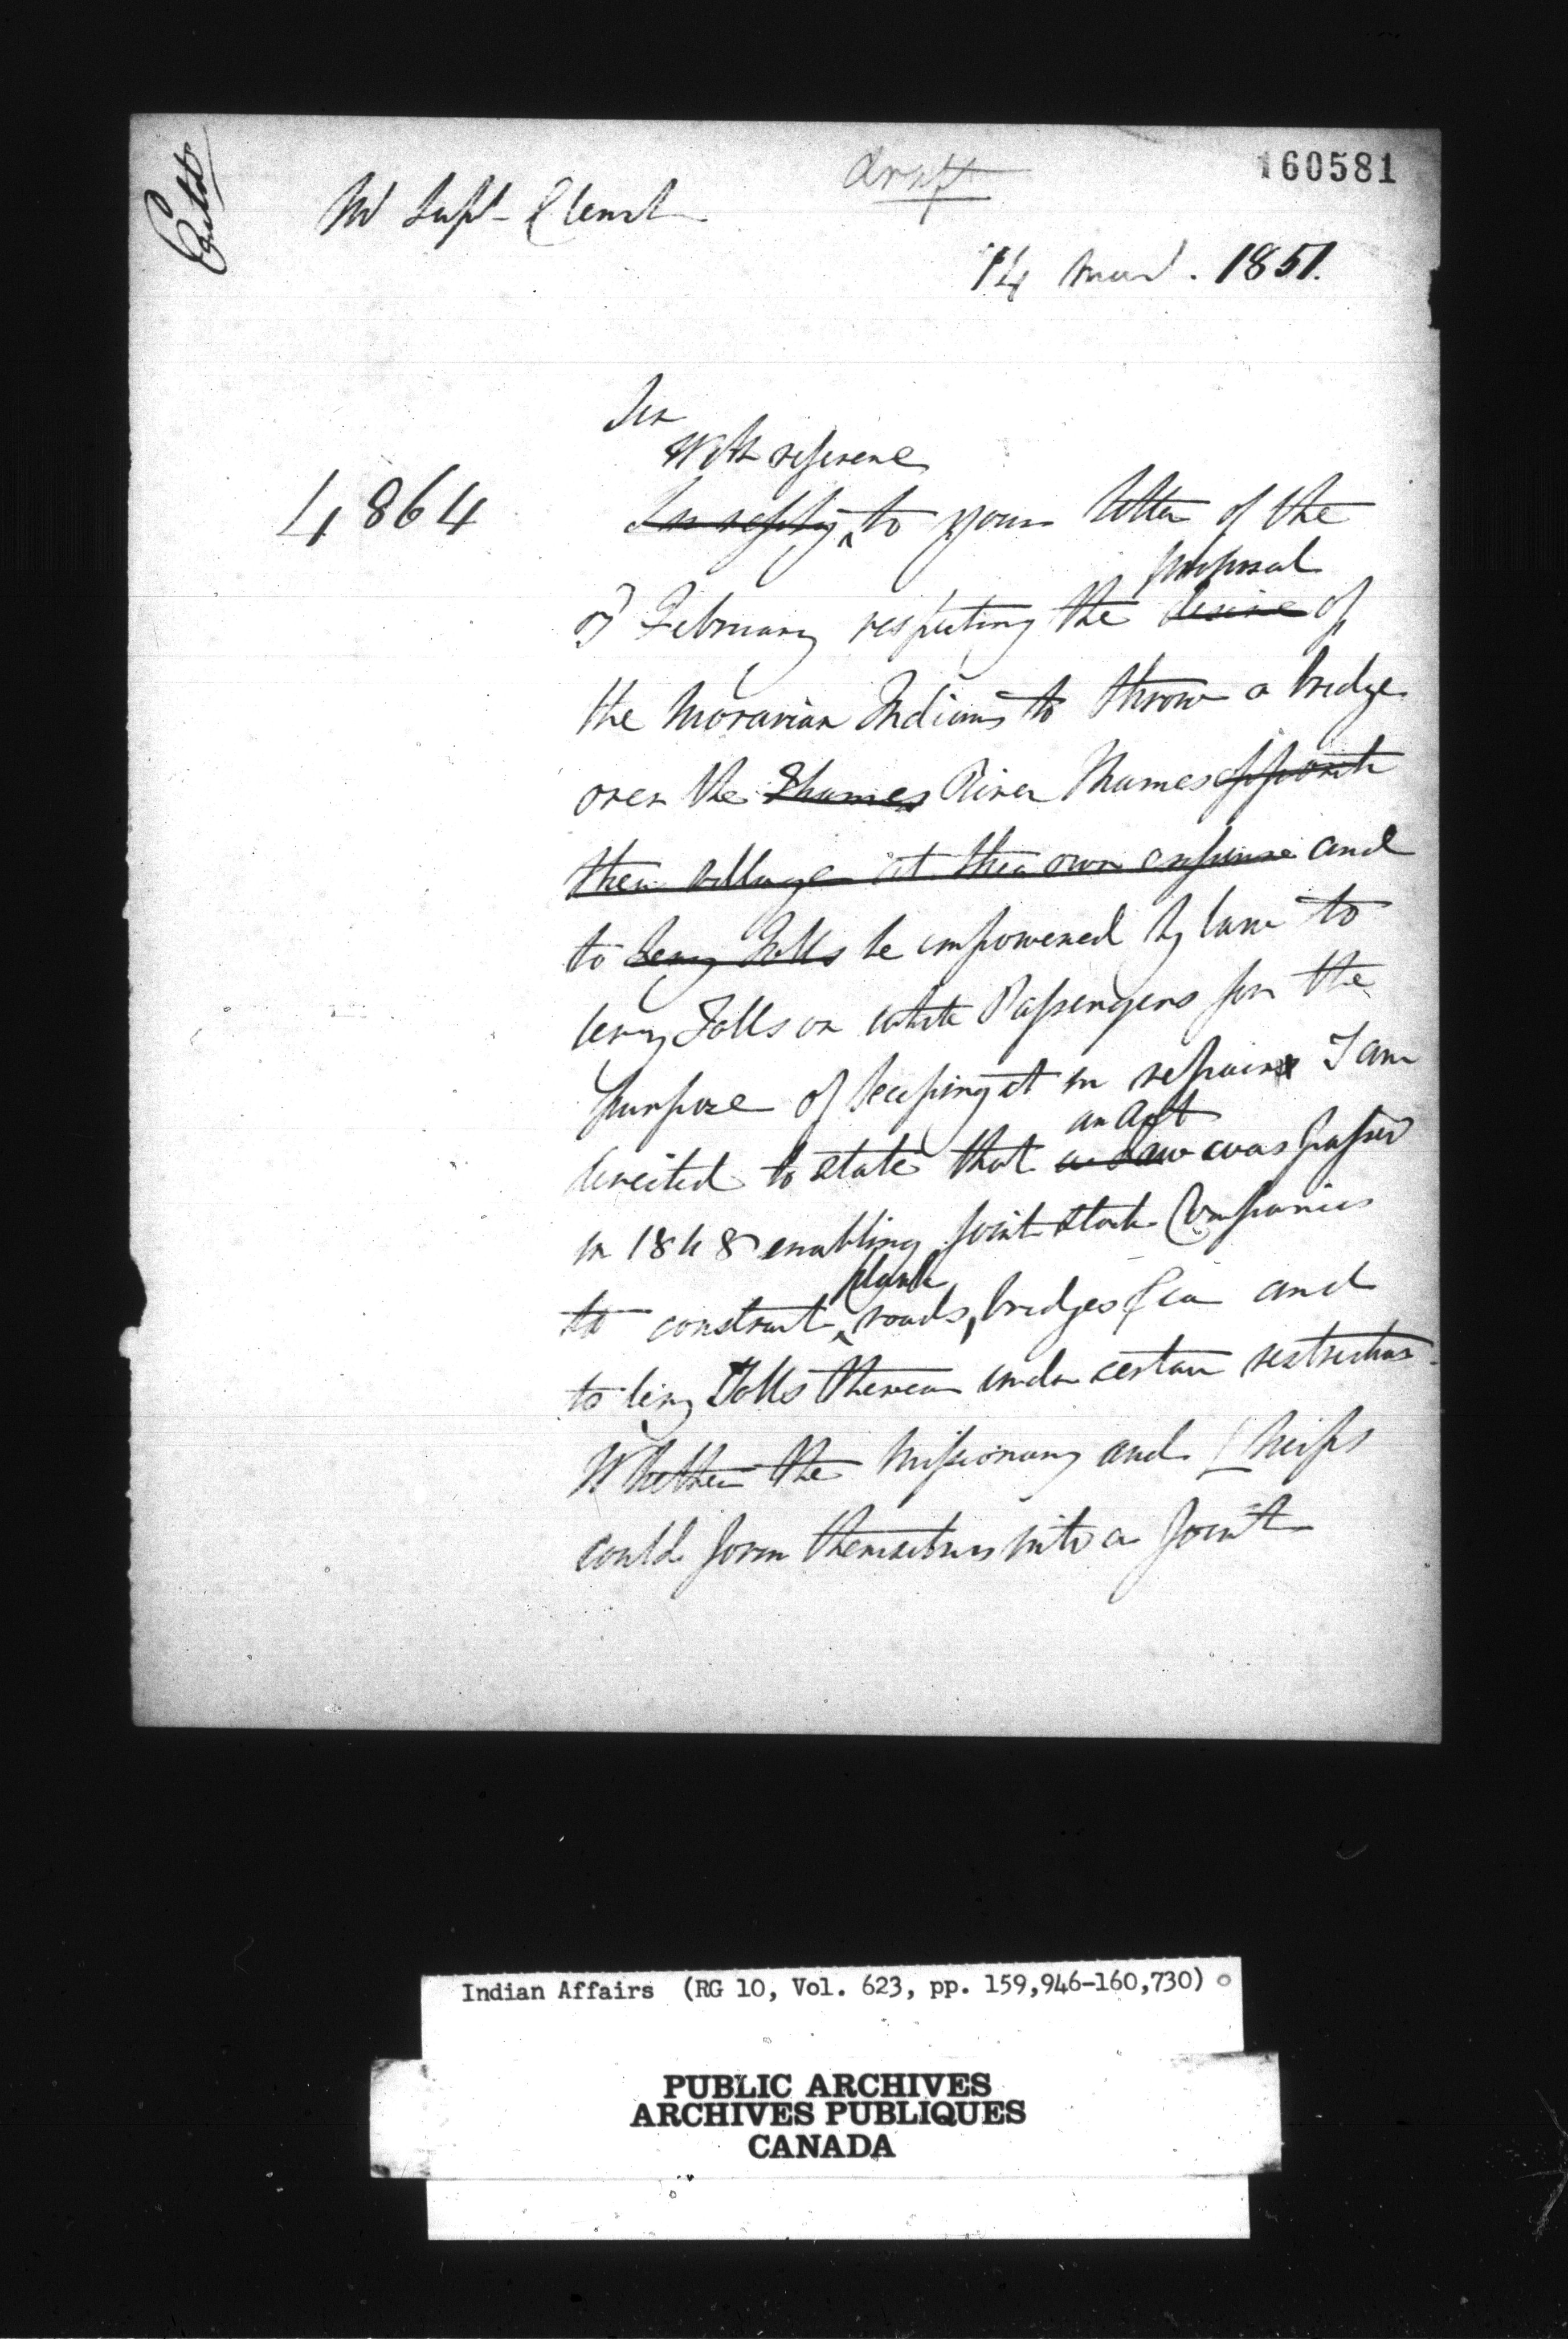 160581
draft
Entd
Mr Supt Clench
14 Mar. 1851.
Sir
With reference
4864
In reply to your letter of the
February respecting the desire of
proposal
the Moravian Indians to throw a bridge
over the Thames River Thames opposite
their village at their own expense and
to levy Tolls be empowered by law to
levy Tolls on white Passengers for the
purpose of keeping it in repair I am
directed to state that a Law was passed
an Act
in 1848 enabling Joint Stock Companies
to construct roads, bridges &ca and
plank
to levy Tolls thereon under certain restrictions.
Whether the Missionary and Chiefs
could form themselves into a Joint
Indian Affairs (RG 10, Vol. 623, pp. 159,946-160,730)
PUBLIC ARCHIVES
ARCHIVES PUBLIQUES
CANADA